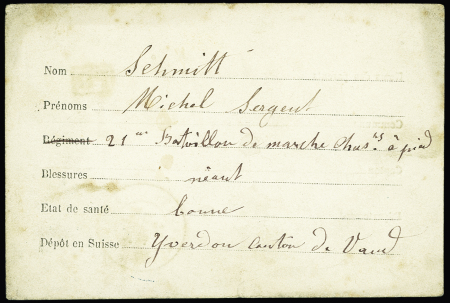 Nom Schmitt
Prénoms Michel Sergent
Régiment 21me Bataillon de marche Chasrs à pied
Blessures néant
Etat de santé bonne
Dépôt en Suisse Yverdon canton de Vaud